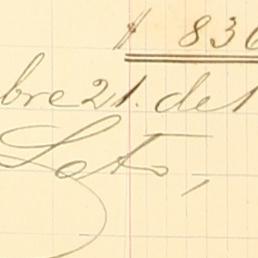 $ 836
bre 21. del
Soto,